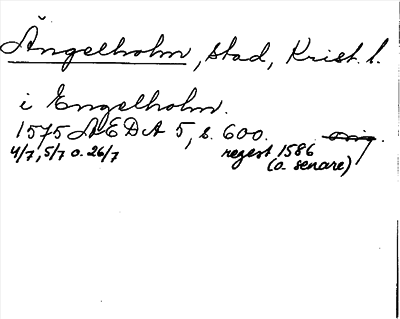 Ängelholm, stad, Krist. l.
i Engelholm.
1575 ÄEDA 5, s. 600. orig.
4/7, 5/7 o. 26/7 regest 1586
(o. senare)